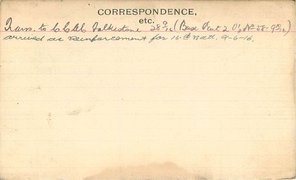 CORRESPONDENCE,
etc.
Trans. to C.C.A.C. Folkestone (Base Part 2 O/
arrived as reinforcement for 16th Battn. 9-6-16.